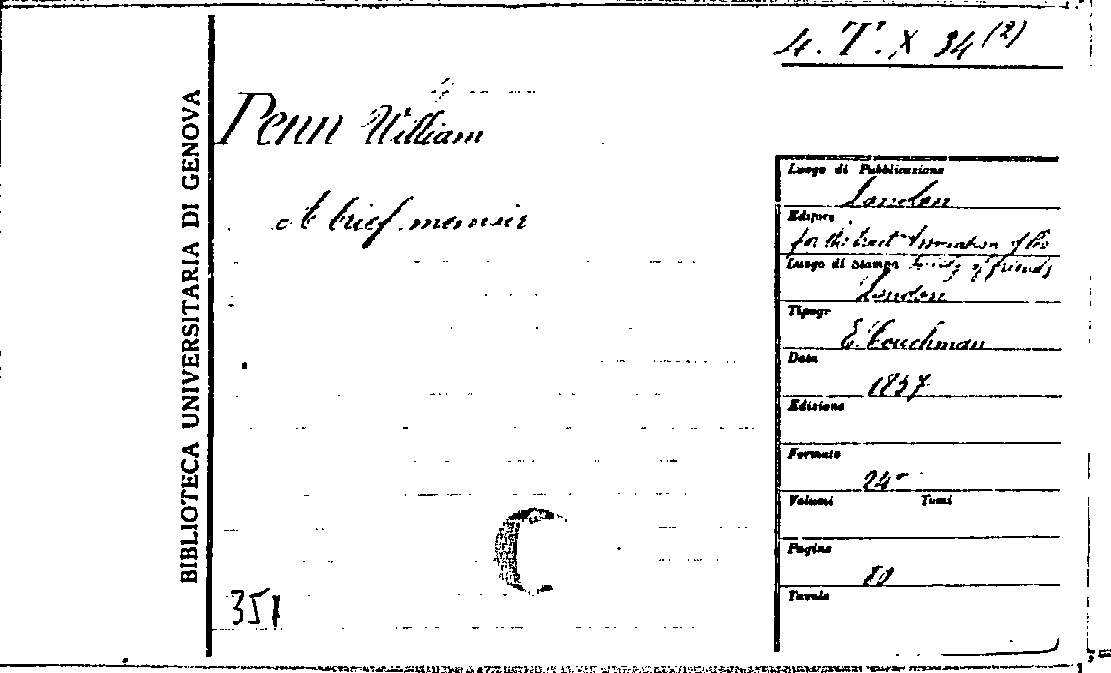 4. T. X 34 (2)
BIBLIOTECA UNIVERSITARIA DI GENOVA
Penn William
A brief memoir
351
Luogo di Pubblicazione
London
Editore
for the tract Association of the
Luogo di Stampa Society of friends
London
Tipogr
E. Couchman
Data
1857
Edizione
Formato
24°
Volumi Tomi
Pagine
Tavole
C